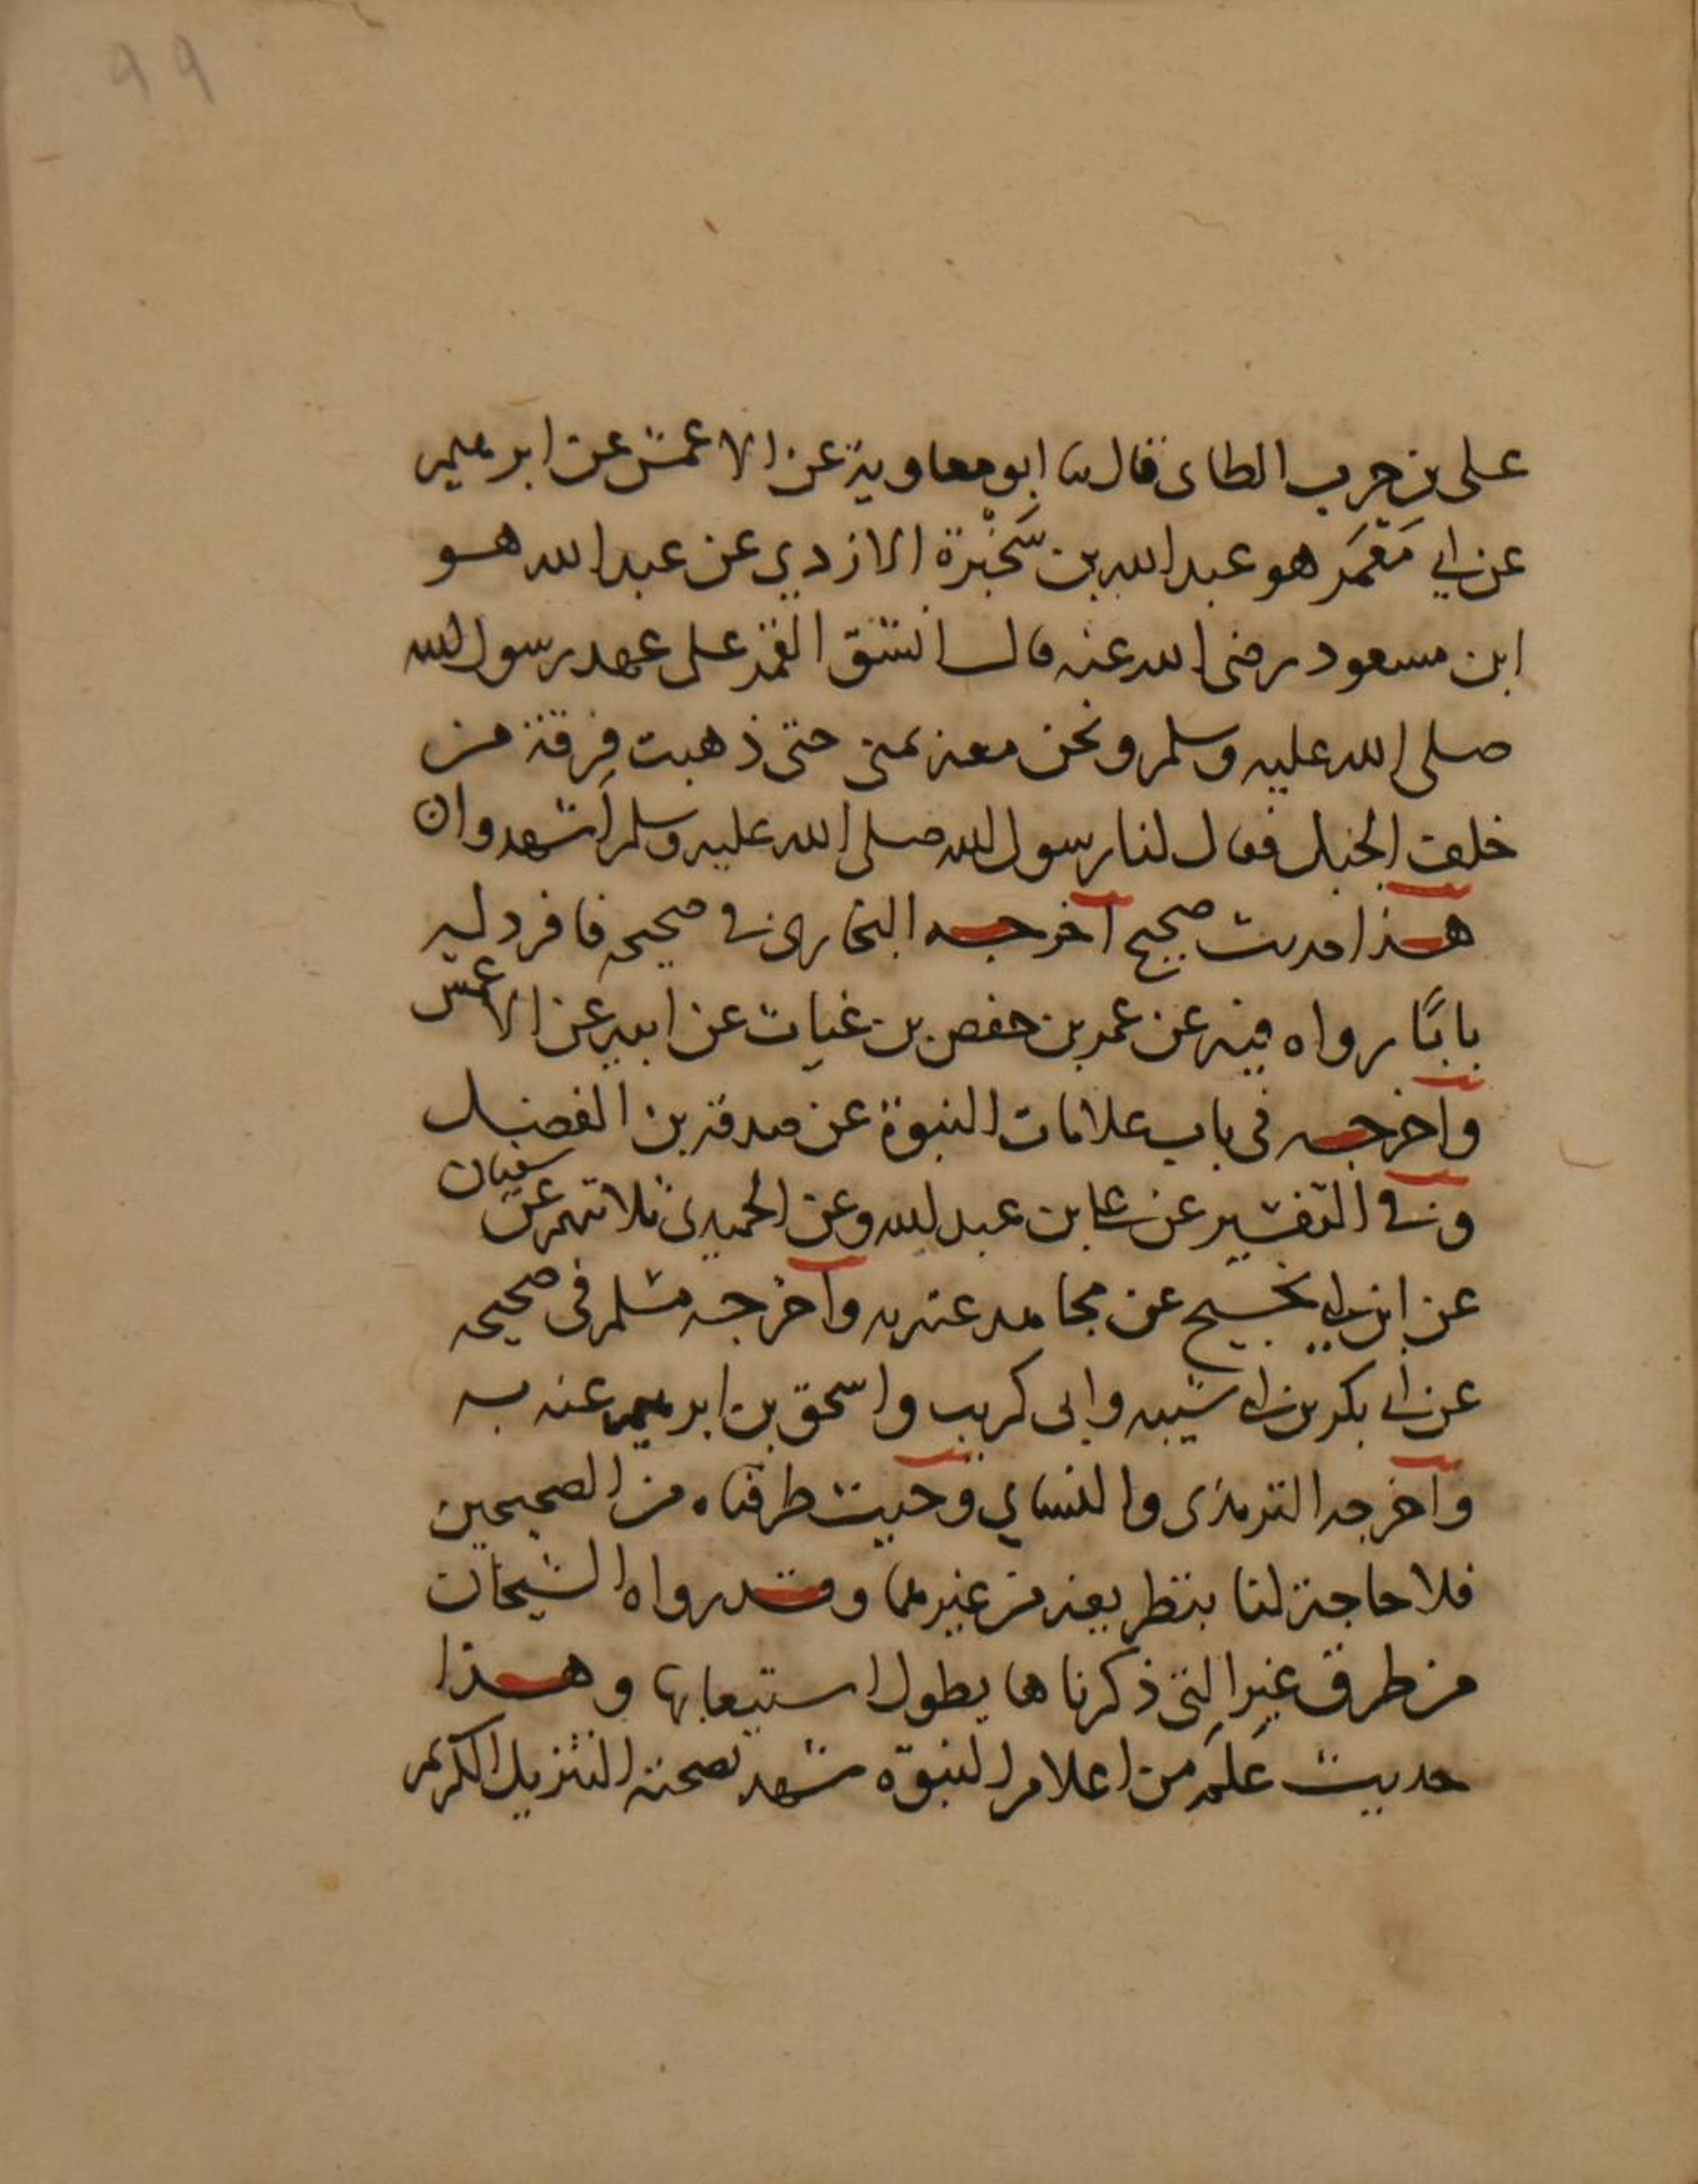 ٩٩
على بن حرب الطاى قال ثنا ابو معاوية عن الاعمش عن ابرهيم
عن ابي مَعْمَر هو عبد الله بن سَخْبَرة الازدي عن عبد الله هو
ابن مسعود رضى الله عنه قال انشق القمر على عهد رسول الله
صلى الله عليه وسلم ونحن معه بمنى حتى ذهبت فِرقة من
خلف الجبل فقال لنا رسول الله صلى الله عليه وسلم اشهدوا ان
هذا حديث صحيح اخرجه البخارى في صحيحه فافرد له
بابًا رواه فيه عن عمر بن حفص بن غياث عن ابيه عن الاعمش
واخرجه فى باب علامات النبوة عن صدقة بن الفضل
وفي التفسير عن علي بن عبد الله وعن الحميدى ثلاثتهم عن سفيان
عن ابن ابي نجيح عن مجاهد عنه به واخرجه مسلم فى صحيحه
عن ابي بكر بن ابي شيبه وابى كريب واسحق بن ابرهيم عنه به
واخرجه الترمذى والنساي وحيث طرقناه من الصحيحين
فلا حاجة لنا بتطريقه من غيرهما وقد رواه الشيخان
من طرق غير التى ذكرناها يطول استيعابها وهذا
حديث عَلَم من اعلام النبوّة شهد بصحته التنزيل الكريم